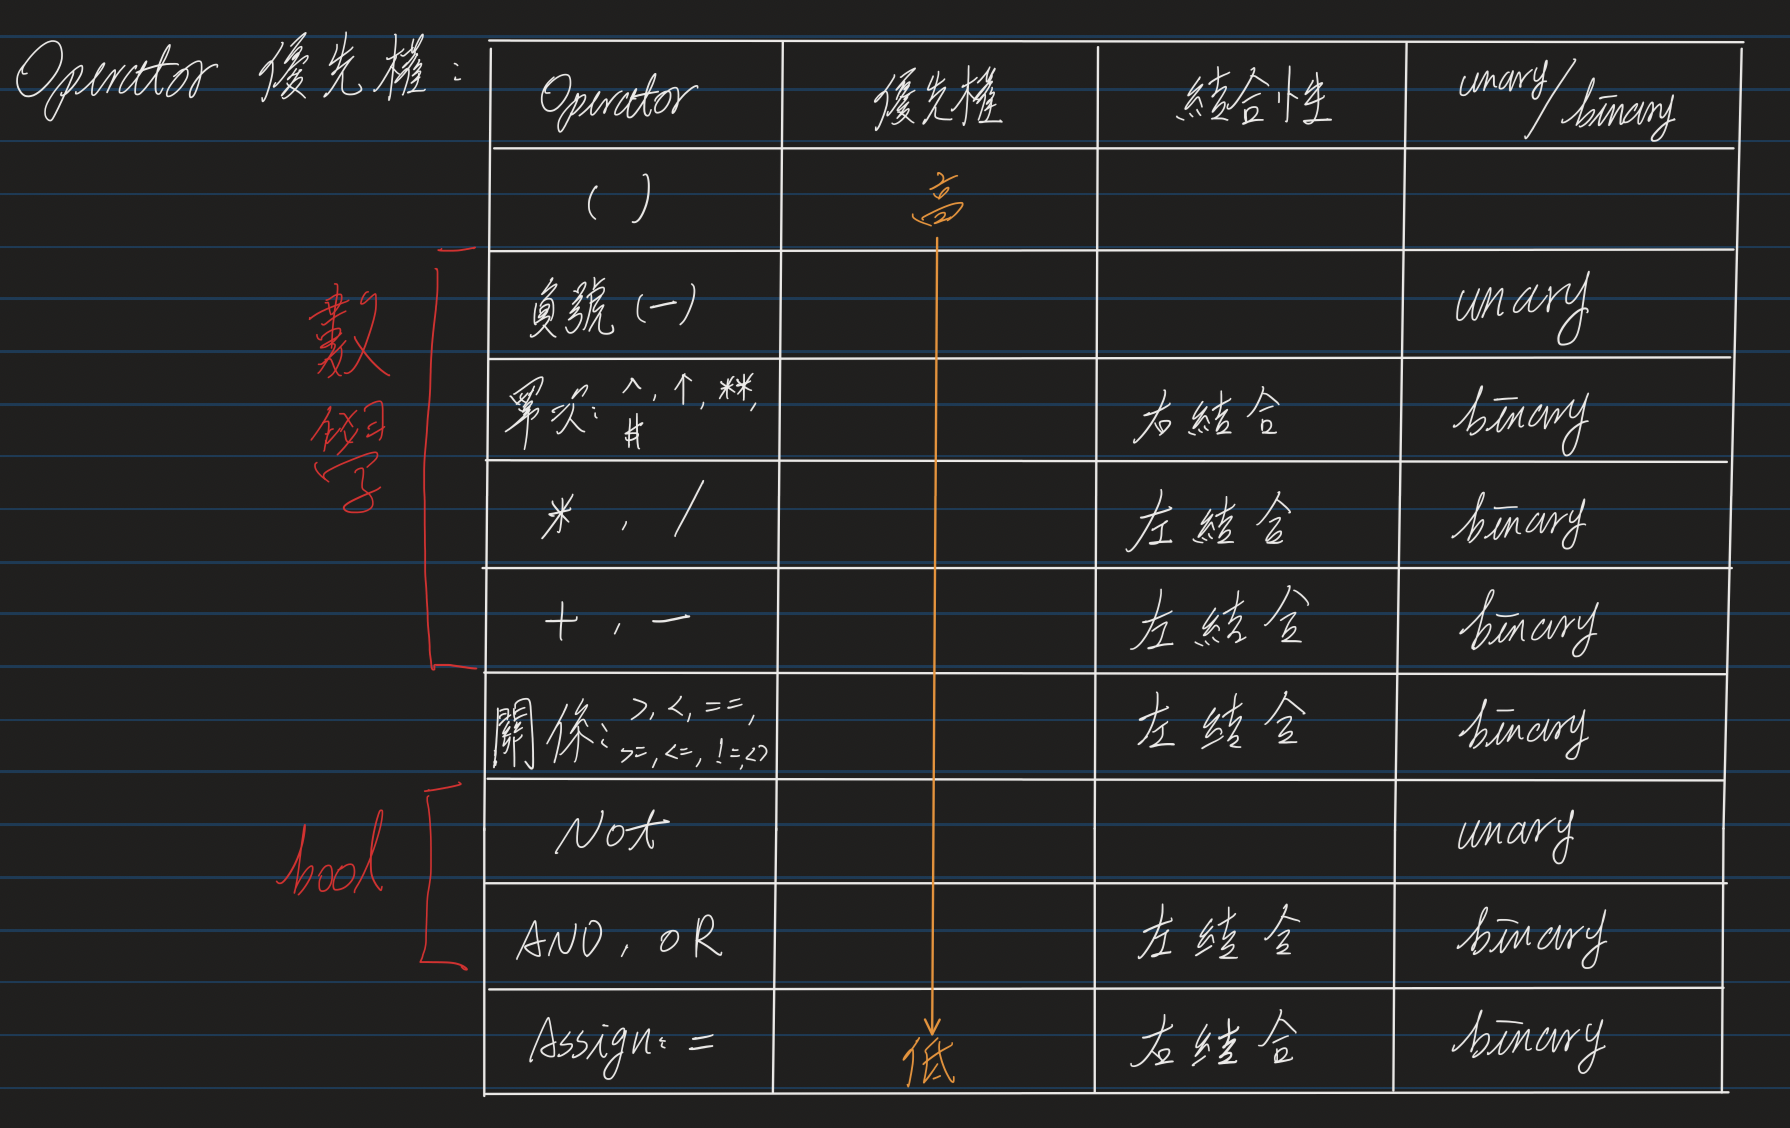 Operator 優先權:
Operator 優先權 結合性 unary/binary
( ) 高
數學
負號 (-) unary
冪次: ^, ↑, **, 右結合 binary
*, / 左結合 binary
+, - 左結合 binary
關係: >, <, ==, 左結合 binary
>=, <=, !=, <>
bool
Not unary
AND, OR 左結合 binary
Assign: = 低 右結合 binary